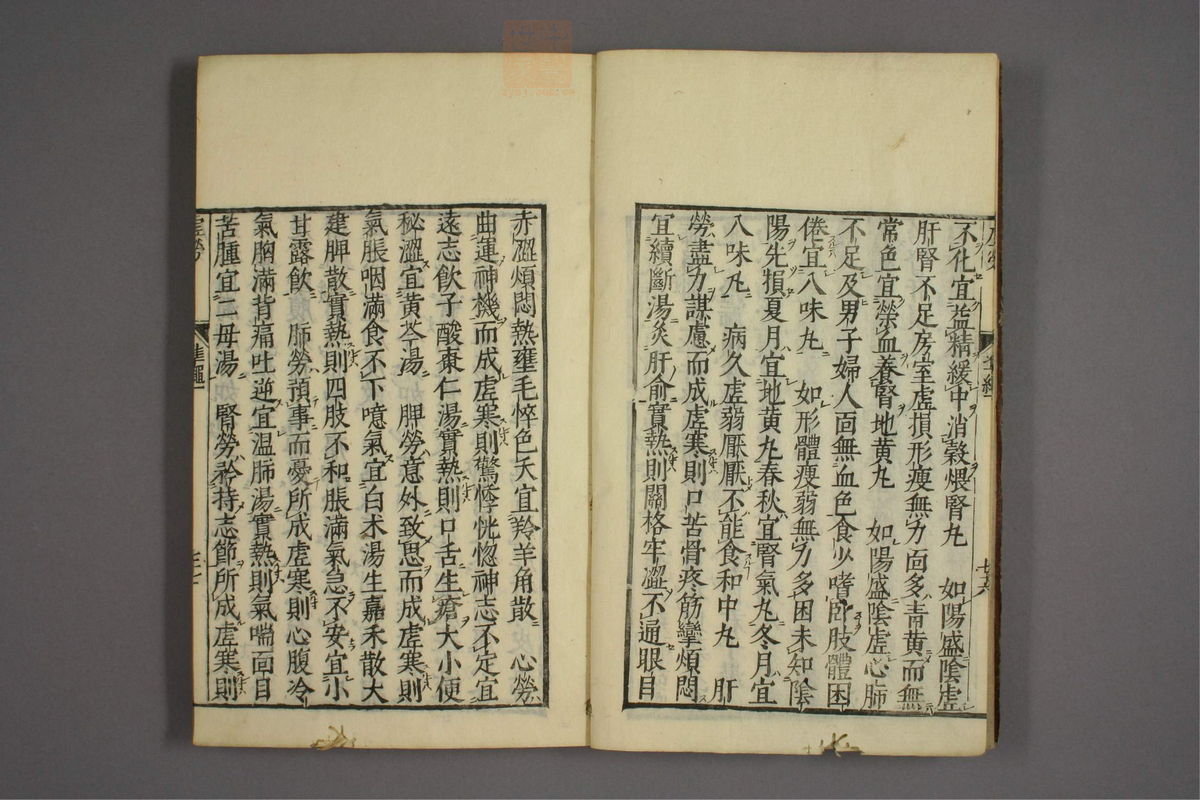 不化宜益精緩中消穀煨腎丸　如陽盛陰虛
肝腎不足房室虛損形瘦無力面多青黃而無
常色宜榮血養腎地黃丸　如陽盛陰虛心肺
不足及男子婦人面無血色食少嗜卧肢體困
倦宜八味丸　如形體瘦弱無力多困未知陰
陽先損夏月宜地黃丸春秋宜腎氣丸冬月宜
八味丸　病久虛弱厭厭不能食和中丸　肝
勞盡力謀慮而成虛寒則口苦骨疼筋攣煩悶
宜續斷湯灸肝俞實熱則關格牢澀不通眼目
赤澀煩悶熱壅毛悴色夭宜羚羊角散　心勞
曲運神機而成虛寒則驚悸恍惚神志不定宜
遠志飲子酸棗仁湯實熱則口舌生瘡大小便
秘澀宜黃芩湯　脾勞意外致思而成虛寒則
氣脹咽滿食不下噫氣宜白朮湯生嘉禾散大
建脾散實熱則四肢不和脹滿氣急不安宜小
甘露飲　肺勞預事而憂所成虛寒則心腹冷
氣胸滿背痛吐逆宜温肺湯實熱則氣喘面目
苦腫宜二母湯　腎勞矜持志節所成虛寒則
虛勞
準繩